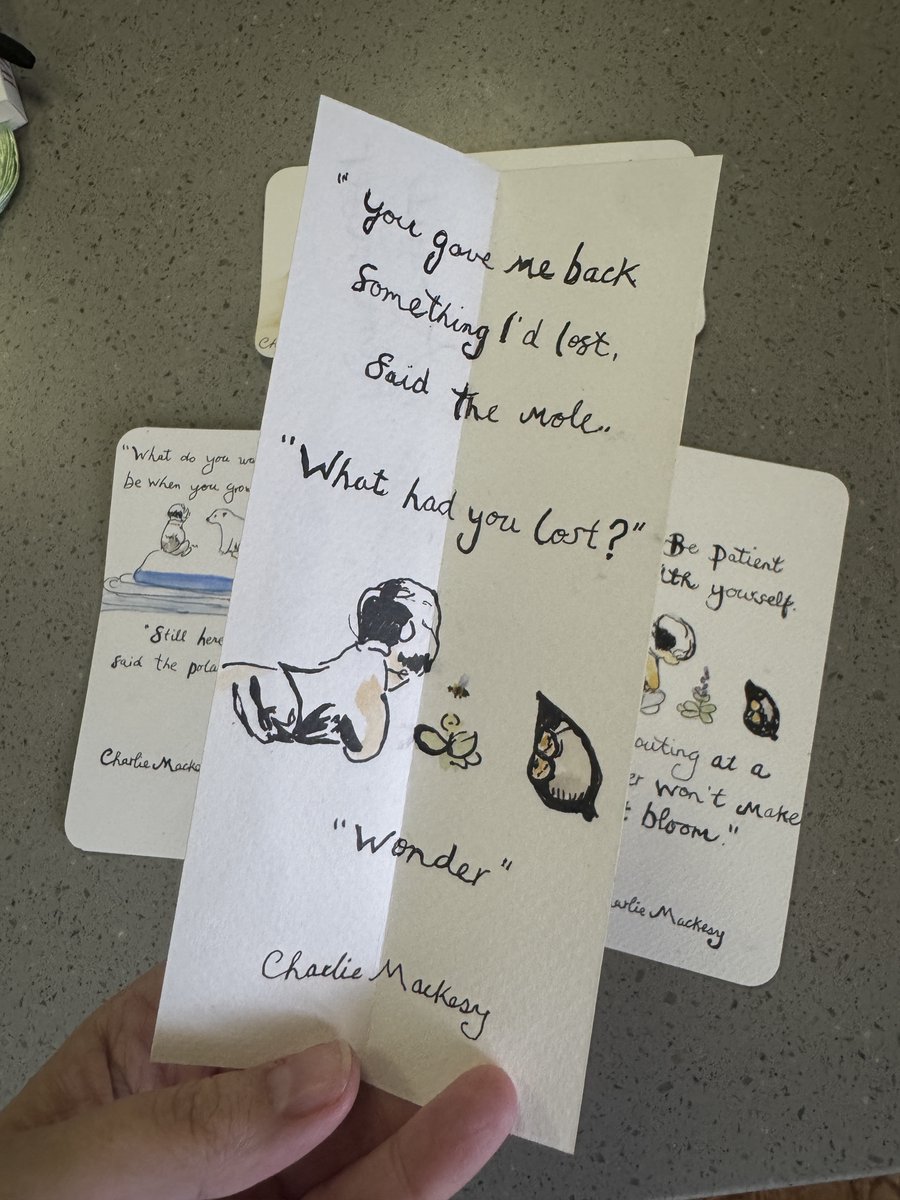 "You gave me back
Something I'd lost,
Said the mole..
"What had you lost?"
"Wonder"
Charlie Mackesy
"What do you
be when you
"Still here
said the
Charlie
Be patient
yourself.
at a
won't make
bloom."
Mackesy